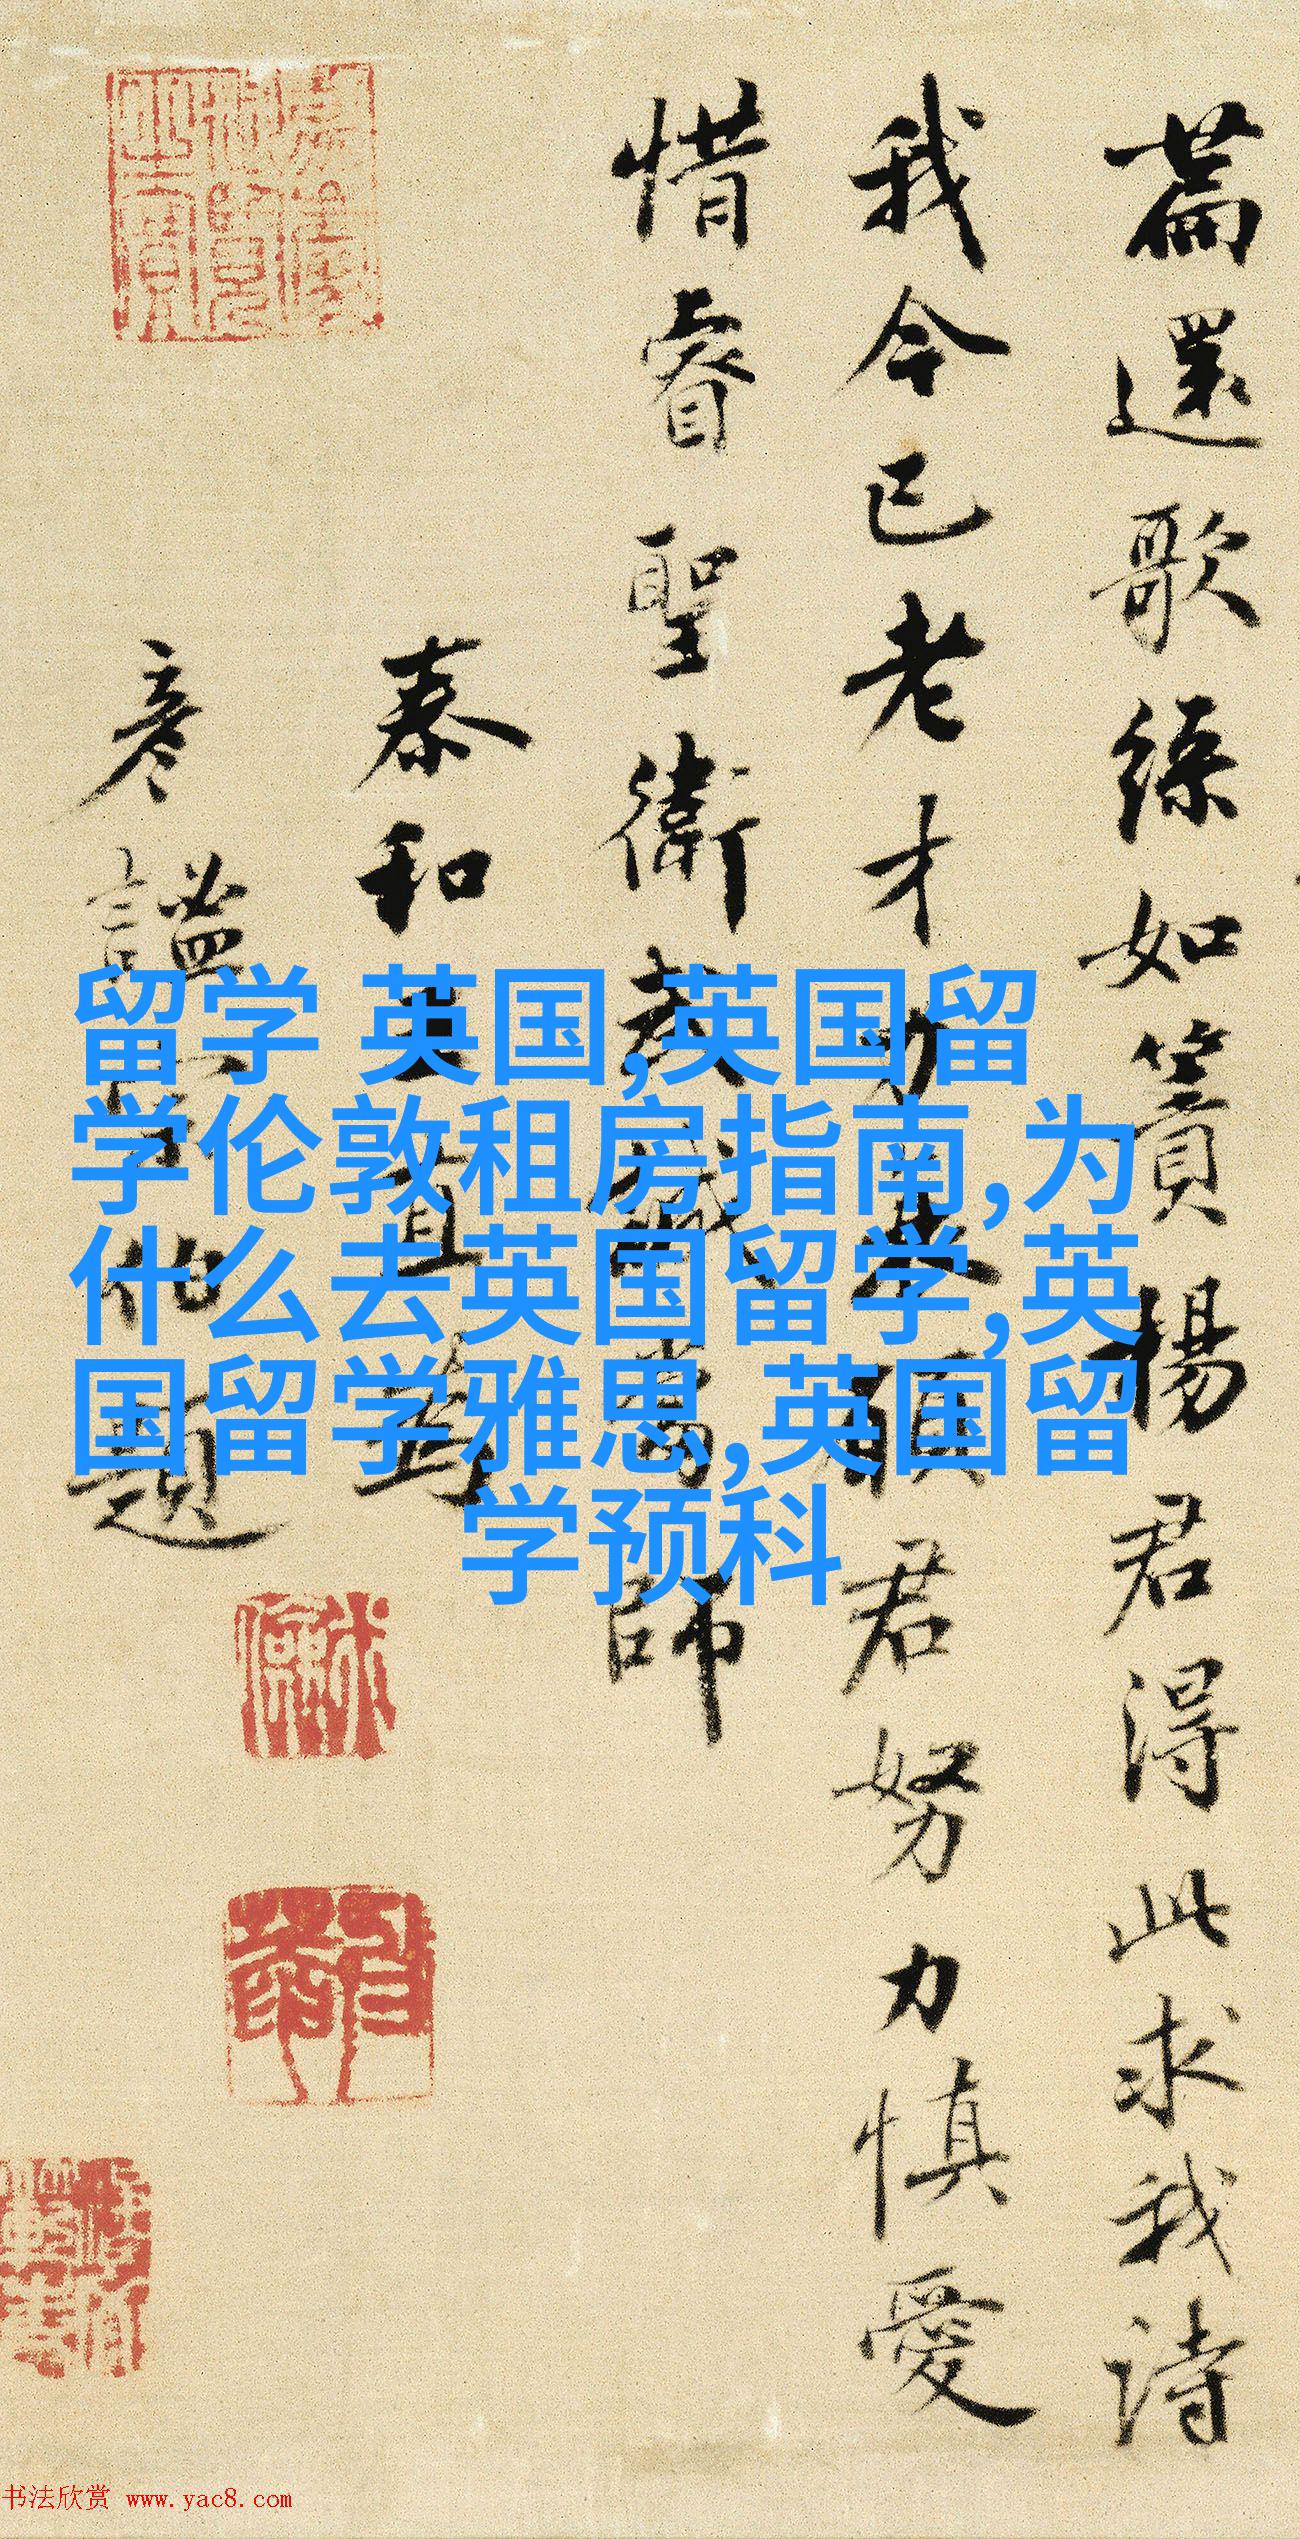 篇還歌綠如簀揚君得此求我詩
我今已老才力衰願君努力慎愛
惜睿聖衛武師
泰和王直為
彥謐伯題
留学 英国,英国留
学伦敦租房指南,为
什么去英国留学,英
国留学雅思,英国留
学预科
书法欣赏 www.yac8.com